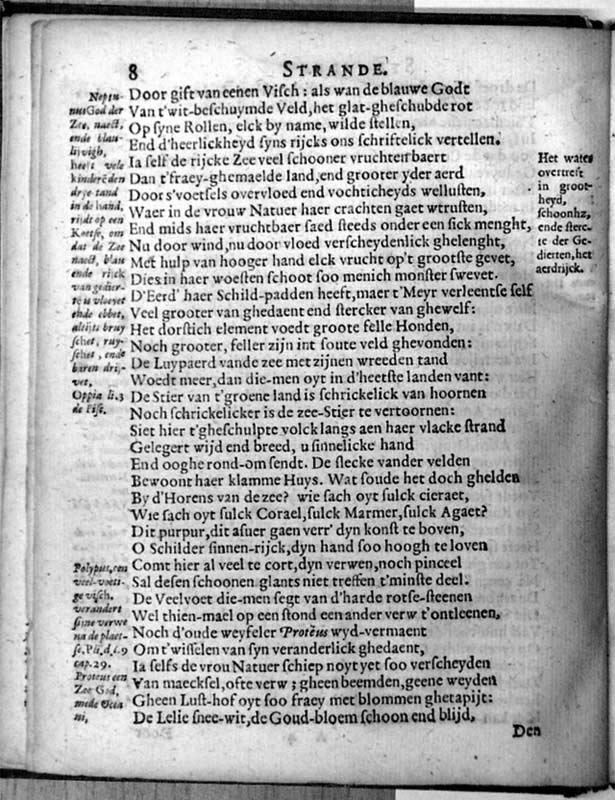 8 STRANDE.
Door gift van eenen Visch: als wan de blauwe Godt
Van t'wit-beschuymde Veld, het glat-gheschubde rot
Op syne Rollen, elck by name, wilde stellen,
End d'heerlickheyd syns rijcks ons schriftelick vertellen.
Ia self de rijcke Zee veel schooner vruchten baert
Dan t'fraey-ghemaelde land, end grooter yder aerd
Door s'voetsels overvloed end vochticheyds wellusten,
Waer in de vrouw Natuer haer crachten gaet wtrusten,
End mids haer vruchtbaer saed steeds onder een sick menght,
Nu door wind, nu door vloed verscheydenlick ghelenght,
Met hulp van hooger hand elck vrucht op't grootste gevet,
Dies in haer woesten schoot soo menich monster swevet.
D'Eerd' haer Schild-padden heeft, maer t'Meyr verleent se self
Veel grooter van ghedaent end stercker van ghewelf:
Het dorstich element voedt groote felle Honden,
Noch grooter, feller zijn int soute veld ghevonden:
De Luypaerd vande zee met zijnen wreeden tand
Woedt meer, dan die-men oyt in d'heetste landen vant:
De Stier van t'groene land is schrickelick van hoornen
Noch schrickelicker is de zee-Stier te vertoornen:
Siet hier t'gheschulpte volck langs aen haer vlacke strand
Gelegert wijd end breed, u sinnelicke hand
End ooghe rond-om sendt. De slecke vander velden
Bewoont haer klamme Huys. Wat soude het doch ghelden
By d'Horens van de zee? wie sach oyt sulck cieraet,
Wie sach oyt sulck Corael, sulck Marmer, sulck Agaet?
Dit purpur, dit asuer gaen verr' dyn konst te boven,
O Schilder sinnen-rijck, dyn hand soo hoogh te loven
Comt hier al veel te cort, dyn verwen, noch pinceel
Sal desen schoonen glants niet treffen t'minste deel.
De Veelvoet die-men segt van d'harde rotse-steenen
Wel thien-mael op een stond een ander verw t'ontleenen,
Noch d'oude weyfeler Protëus wyd-vermaent
Om t'wisselen van syn veranderlick ghedaent,
Ia selfs de vrou Natuer schiep noyt yet soo verscheyden
Van maecksel, ofte verw; gheen beemden, geene weyden
Gheen Lust-hof oyt soo fraey met blommen ghetapijt:
De Lelie snee-wit, de Goud-bloem schoon end blijd,
Den
Neptu-
nus God der
Zee, naect,
ende blau-
lijvigh,
heeft vele
kinderē den
drye-tand
in de hand,
rijdt op een
Koetse, om
dat de Zee
naect, blau
ende rijck
van gedier-
te is vloeyet
ende ebbet,
altijts bruy
schet, ruy-
schet, ende
baren drij-
vet,
Oppia li. 3
de Pisc.
Polypus, een
veel-voeti-
ge visch.
verandert
sijne verwe
na de plaet-
se. Pli. d. l. 9
cap. 29.
Proteus een
Zee God,
mede
ni,
Het water
overtreft
in groot-
heyd,
schoonhz,
ende sterc-
te der Ge-
dierten, het
aerdrijck.